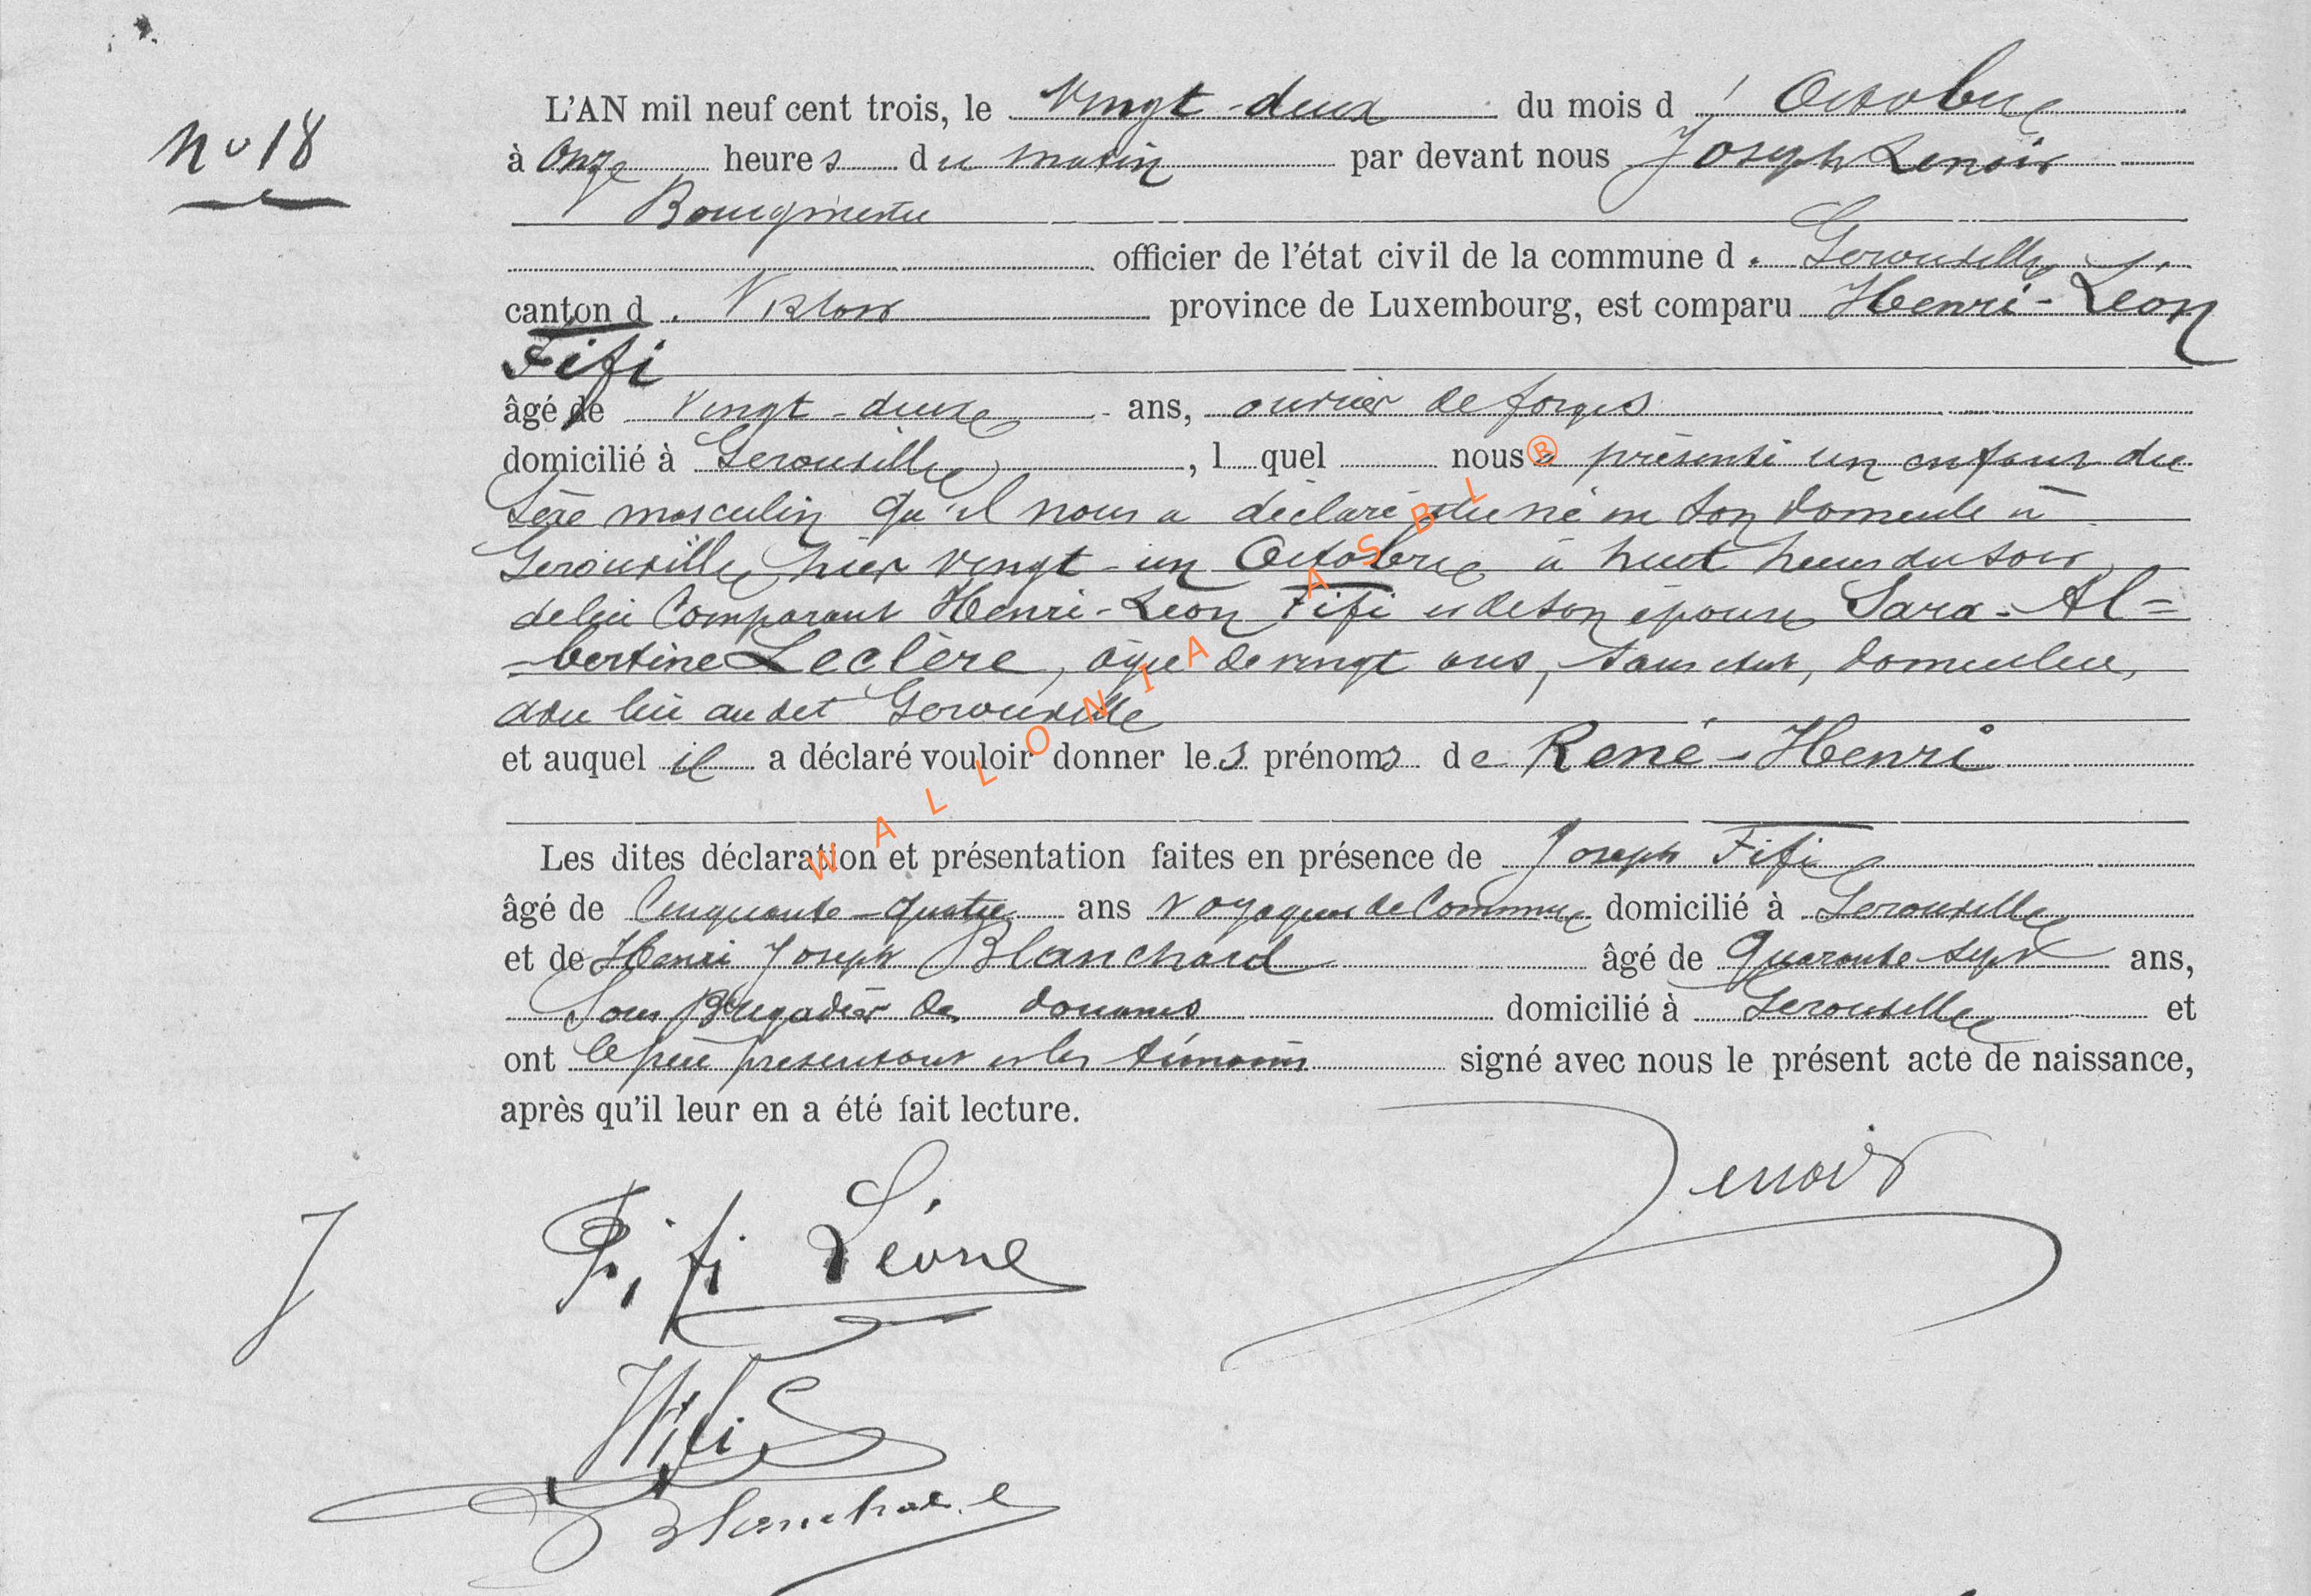 L'AN mil neuf cent trois, le Vingt-deux du mois d' Octobre
N° 18
à Onze heures du matin par devant nous Joseph Lenoir
Bourgmestre
officier de l'état civil de la commune d. Gerouville
canton d. Virton province de Luxembourg, est comparu Henri-Léon
Fifi
âgé de vingt-deux ans, ouvrier de forges
domicilié à Gerouville, l quel nous a présenté un enfant du
sexe masculin qu'il nous a déclaré être né en son domicile à
Gerouville, hier vingt-un Octobre à huit heures du soir
de lui Comparant Henri-Léon Fifi et de son épouse Sara-Al=
-bertine Leclère, âgée de vingt ans, sans état, domiciliée,
avec lui audit Gerouville
et auquel il a déclaré vouloir donner les prénoms de René-Henri
Les dites déclaration et présentation faites en présence de Joseph Fifi
âgé de Cinquante-quatre ans voyageur de Commerce domicilié à Gerouville
et de Henri Joseph Blanchard âgé de Quarante-sept ans,
Sous Brigadier des douanes domicilié à Gerouville et
ont le père présentant et les témoins signé avec nous le présent acte de naissance,
après qu'il leur en a été fait lecture.
Lenoir
Fifi Léon
J
Fifi
Blanchard
WALLONIA ASBL ®